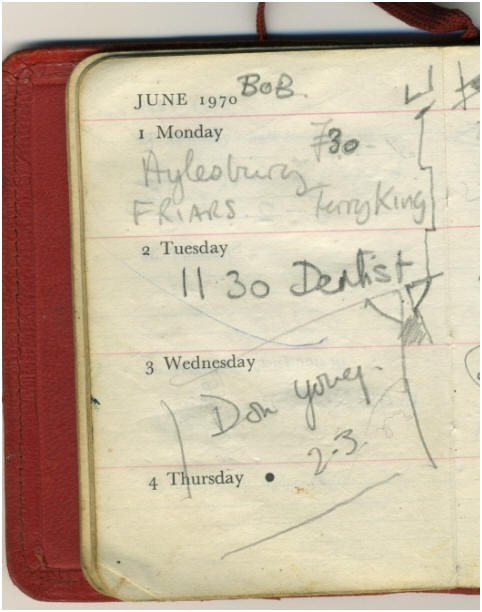 JUNE 1970 BOB.
1 Monday 7 30
Aylesbury
FRIARS. Terry King
2 Tuesday
11 30 Dentist
3 Wednesday
Don young.
2-3.
4 Thursday